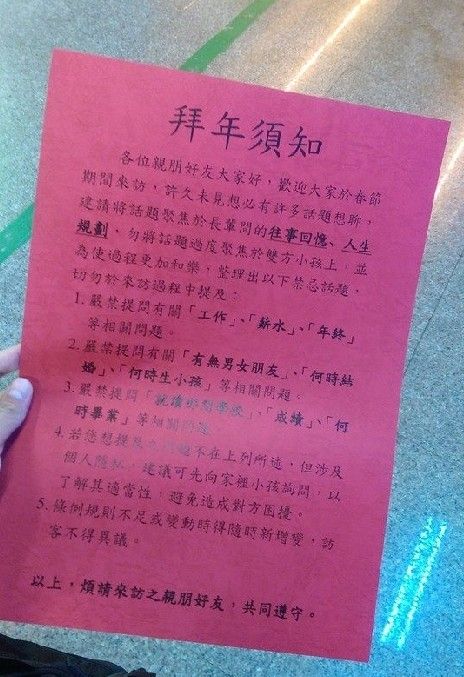 拜年須知
各位親朋好友大家好，歡迎大家於春節
期間來訪，許久未見想必有許多話題想聊，
建議將話題聚焦於長輩間的往事回憶、人生
規劃，勿將話題過度聚焦於雙方小孩上，並
為使過程更加和樂，整理出以下禁忌話題，
切勿於來訪過程中提及：
1. 嚴禁提問有關「工作」、「薪水」、「年終」
等相關問題。
2. 嚴禁提問有關「有無男女朋友」、「何時結
婚」、「何時生小孩」等相關問題。
3. 嚴禁提問「就讀哪間學校」、「成績」、「何
時畢業」等相關問題。
4. 若您想提及之問題不在上列所述，但涉及
個人隱私，建議可先向家裡小孩詢問，以
了解其適當性，避免造成對方困擾。
5. 條例規則不足或變動時得隨時新增變，訪
客不得異議。
以上，煩請來訪之親朋好友，共同遵守。